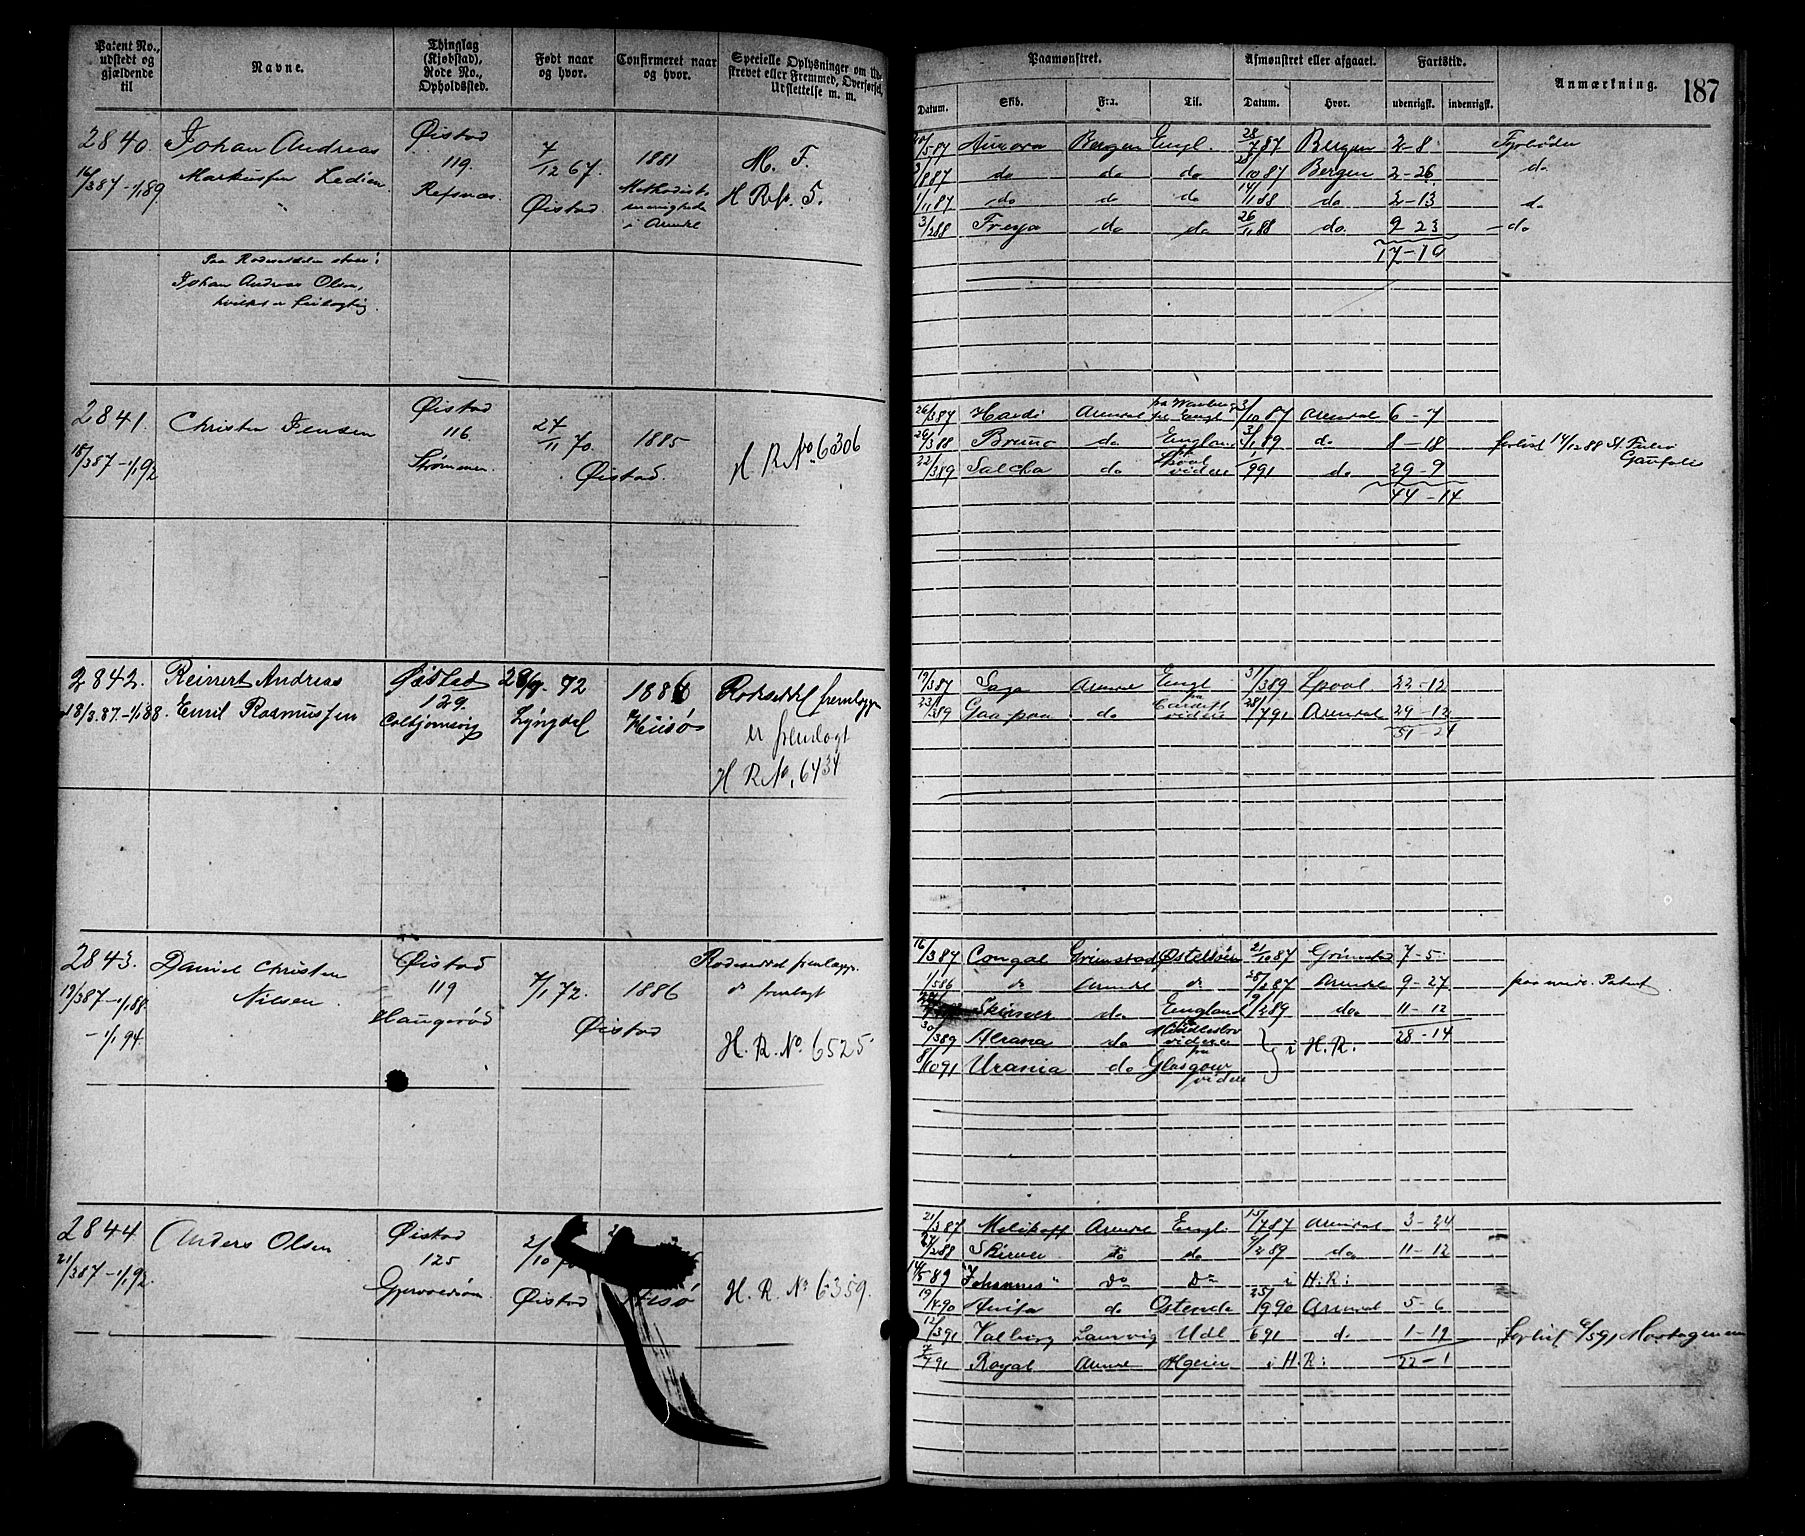 Patent No., udstedt og gjældende til
Navne.
Thinglag (Kjøbstad), Rode No., Opholdssted.
Født naar og hvor.
Confirmeret naar og hvor.
Specielle Oplysninger om Udskrevet eller Fremmed, Overførsel, Udslettelse m. m.
Paamønstret.
Afmønstret eller afgaaet.
Fartstid.
Anmærkning.
187
Datum.
Skib.
Fra.
Til.
Datum.
Hvor.
udenrigsk.
indenrigsk.
2840.
16/3 87 - 1/1 89
Johan Andreas
Markussen Ledien
Øistad
119.
Refsnæs.
7/12 67.
Øistad
1881
Methodist-
menighede
i Arendal
M. F.
H R
Paa Rodeseddelen staar:
Johan Andreas Olsen,
hvilket er feilagtig.
/5 87 Aurora Bergen Engl. 28/7 87 Bergen 2-8
/8 87 do do do /10 87 Bergen 2-26 do
1/11 87 do do do 14/1 88 do 2-13 do
3/2 88 Freya do do 26/11 88 do. 9-23 do
17-10
2841.
18/3 87 - 1/1 92
Christen Jensen
Øistad
116.
Strømmen
27/11 70.
1885
Øistad.
H R No 6306
26/3 87 Arendal 3/10 87 Arendal 6-7
26/3 88 Bruno do England 3/1 89 do 8-18 forlist 14/12 88
22/3 89 do videre 1/9 91 do 29-9
44-14
2842.
18/3 87 - 1/1 88.
Reinert Andreas
Emil Rasmussen
Øistad
129.
Colbjørnsvig
28/9 72
Lyngdal
1886
Hisø
Rodeseddel fremlægges
er fremlagt
H R No. 6434
19/3 87 Saga Arendal Engl 31/3 89 Lpool 22-12
23/ 89 Gaa paa do Cardiff videre 28/7 91 Arendal 29-12
51-24
2843.
19/3 87 - 1/1 88.
- 1/1 94.
Daniel Christen
Nilsen
Øistad
119
Haugerød
7/1 72.
1886
Øistad
Rodeseddel fremlægges
er fremlagt
H. R. No 6525
16/3 87 Congal Grimstad Østersøen 21/10 87 Grimstad 7-5
1/5 86 do Arendal do 28/2 87 Arendal 9-27 paa midl. Patent
Skirner do England 19/1 89 do 11-12
30/3 89 do Middlesbro videre 28-14
8/10 91 Urania do Glasgow videre
i H. R:
2844
21/3 87 - 1/1 92
Anders Olsen
Øistad
125
2/10
Øistad
H. R. No 6359.
21/3 87 Melikoff Arendal Engl. 15/7 87 Arendal 3-24
27/2 88 Skirner do do 9/2 89 do 11-12
14/5 89 "Johannes" Do Do i H: R:
19/4 90 Anita do Ostende 25/9 90 Arendal 5-6
12/3 91 Valborg Laurvig Udl 6 91 do 1-19 forlist 6/5 91
7/7 91 Royal Arendal Algier i H: R: 22-1